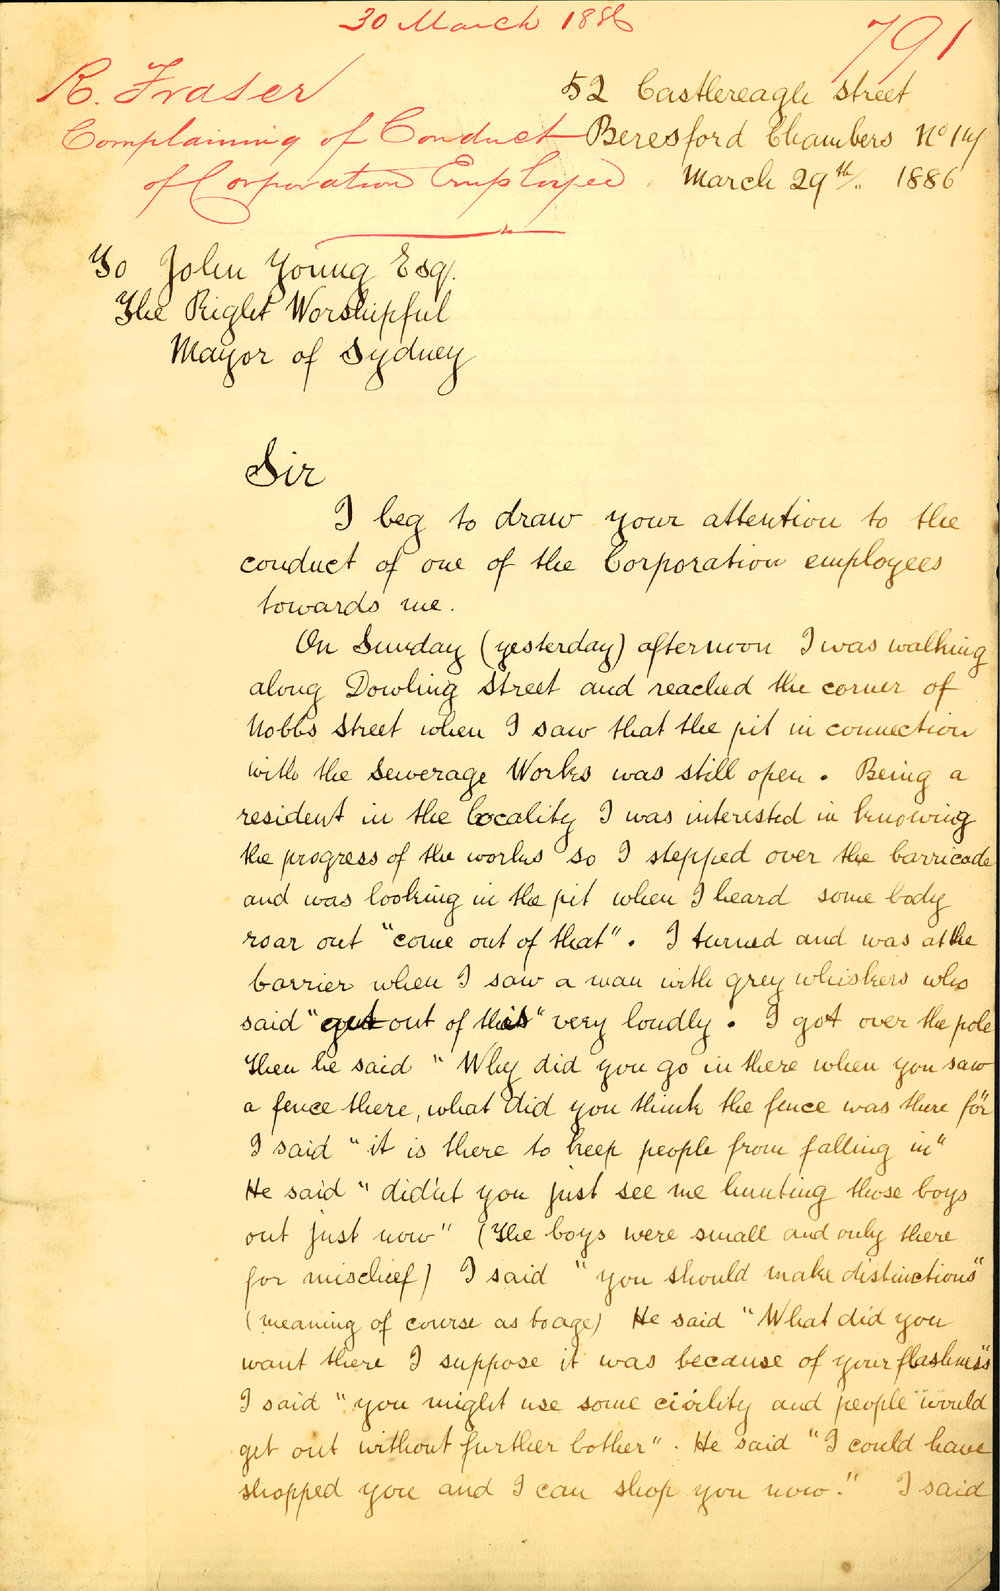 30 March 1886
791
R. Fraser
Complaining of Conduct
of Corporation Employee.
52 Castlereagh Street
Beresford Chambers No 14
March 29th/. 1886
To John Young Esq.
The Right Worshipful
Mayor of Sydney
Sir
I beg to draw your attention to the
conduct of one of the Corporation employees
towards me.
On Sunday (yesterday) afternoon I was walking
along Dowling Street and reached the corner of
Nobbs Street when I saw that the pit in connection
with the Sewerage Works was still open. Being a
resident in the locality I was interested in knowing
the progress of the works so I stepped over the barricade
and was looking in the pit when I heard some body
roar out "come out of that". I turned and was at the
barrier when I saw a man with grey whiskers who
said "get out of this" very loudly. I got over the pole
then he said "Why did you go in there when you saw
a fence there, what did you think the fence was there for"
I said "it is there to keep people from falling in"
He said "did'nt you just see me hunting those boys
out just now" (The boys were small and only there
for mischief) I said "you should make distinctions"
(meaning of course as to age) He said "What did you
want there I suppose it was because of your flashness"
I said "you might use some civility and people would
get out without further bother". He said "I could have
shopped you and I can shop you now." I said